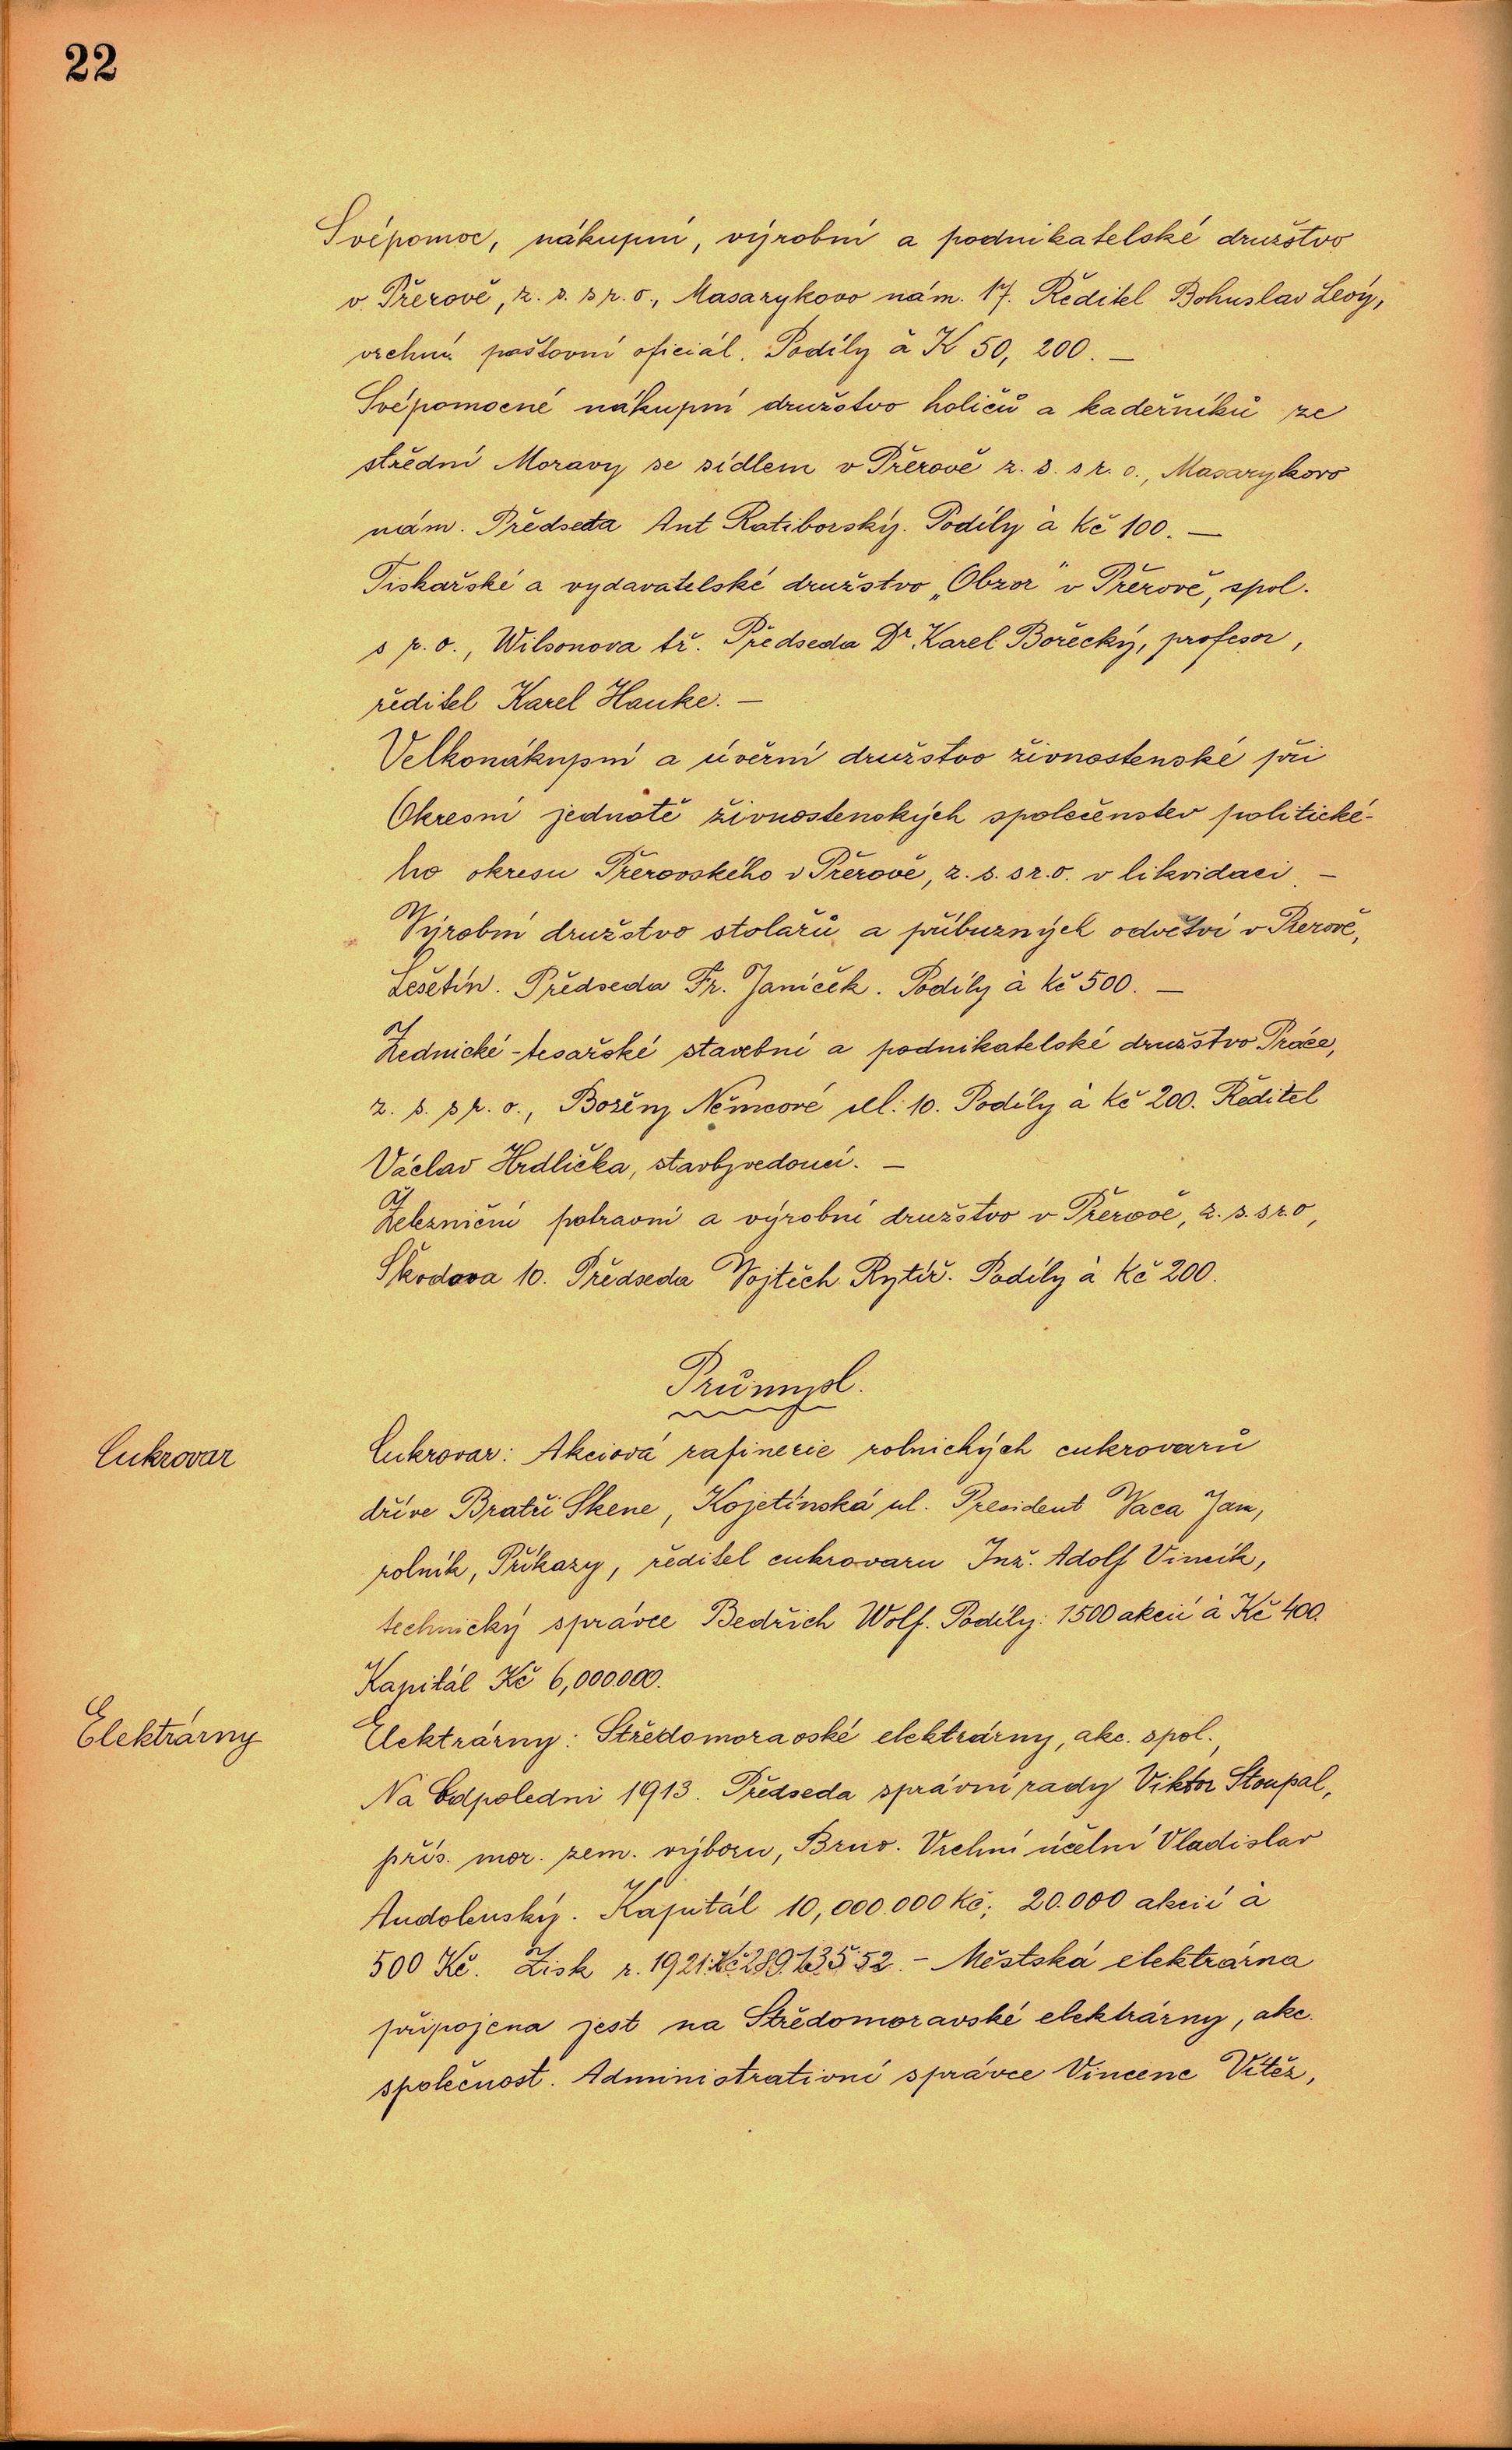 22
Svépomoc, nákupní, výrobní a podnikatelské družstvo
v Přerově, z. s. s r. o., Masarykovo nám. 17. Ředitel Bohuslav Levý,
vrchní poštovní oficiál. Podíly à K 50, 200. —
Svépomocné nákupní družstvo holičů a kadeřníků ze
střední Moravy se sídlem v Přerově z. s. s r. o., Masarykovo
nám. Předseda Ant Ratiborský. Podíly à Kč 100. —
Tiskařské a vydavatelské družstvo „Obzor" v Přerově, spol.
s r. o., Wilsonova tř. Předseda Dr. Karel Bořecký, profesor,
ředitel Karel Hauke. —
Velkonákupní a úvěrní družstvo živnostenské při
Okresní jednotě živnostenských společenstev politické-
ho okresu Přerovského v Přerově, z. s. s r. o. v likvidaci. —
Výrobní družstvo stolařů a příbuzných odvětví v Prerově,
Lešetín. Předseda Fr. Janíček. Podíly à Kč 500. —
Zednické-tesařské stavební a podnikatelské družstvo Práce,
z. s. s r. o., Boženy Němcové ul. 10. Podíly à Kč 200. Ředitel
Václav Hrdlička, stavbyvedoucí. —
Železniční potravní a výrobní družstvo v Přerově, z. s. s r. o,
Škodova 10. Předseda Vojtěch Rytíř. Podíly à Kč 200.
Průmysl.
Cukrovar
Cukrovar: Akciová rafinerie rolnických cukrovarů
dříve Bratří Skene, Kojetínská ul. President Vaca Jan,
rolník, Příkazy, ředitel cukrovaru Inž. Adolf Vincík,
technický správce Bedřich Wolf. Podíly: 1500 akcií à Kč 400.
Kapitál Kč 6,000.000.
Elektrárny
Elektrárny: Středomoravské elektrárny, akc. spol.,
Na Odpoledni 1913. Předseda správní rady Viktor Stoupal,
přís. mor. zem. výboru, Brno. Vrchní účetní Vladislav
Andolenský. Kapitál 10,000.000 Kč; 20.000 akcií à
500 Kč. Zisk r. 1921: Kč 289.135.52. — Městská elektrárna
připojena jest na Středomoravské elektrárny, akc.
společnost. Administrativní správce Vincenc Vítěz,